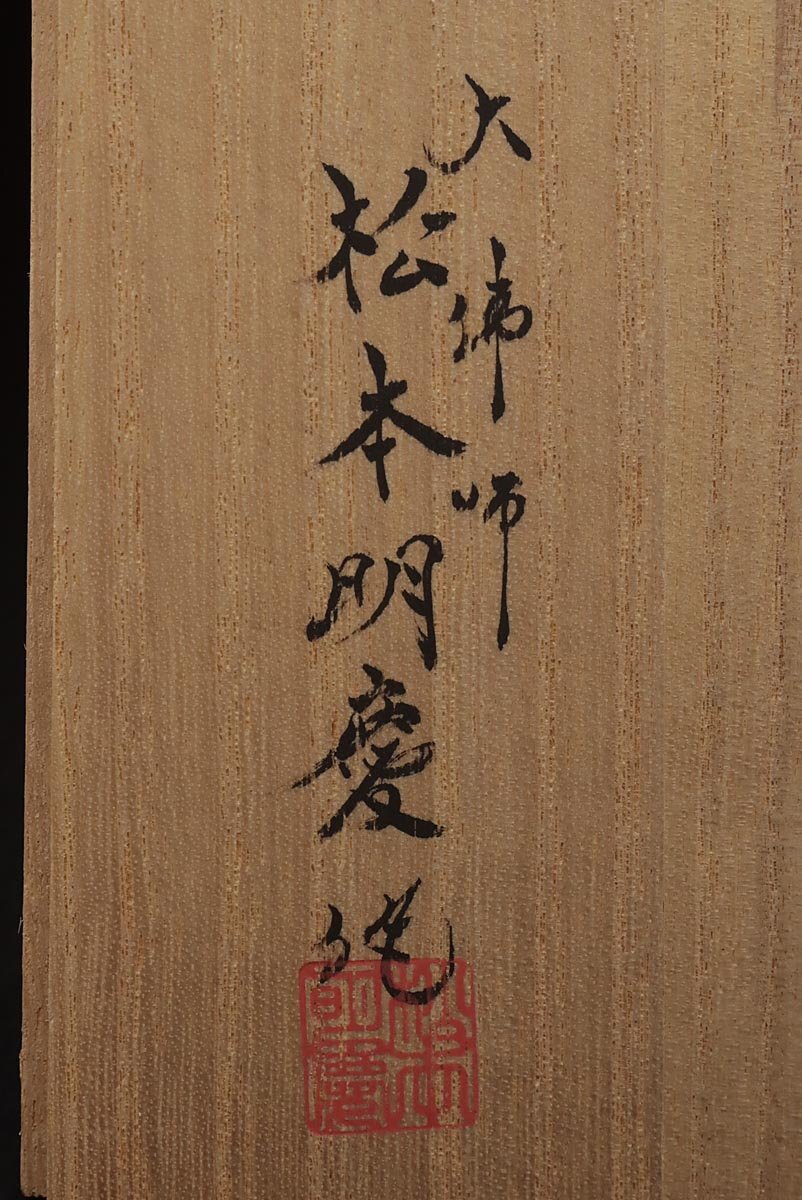 大佛師
松本明慶
松本
明慶